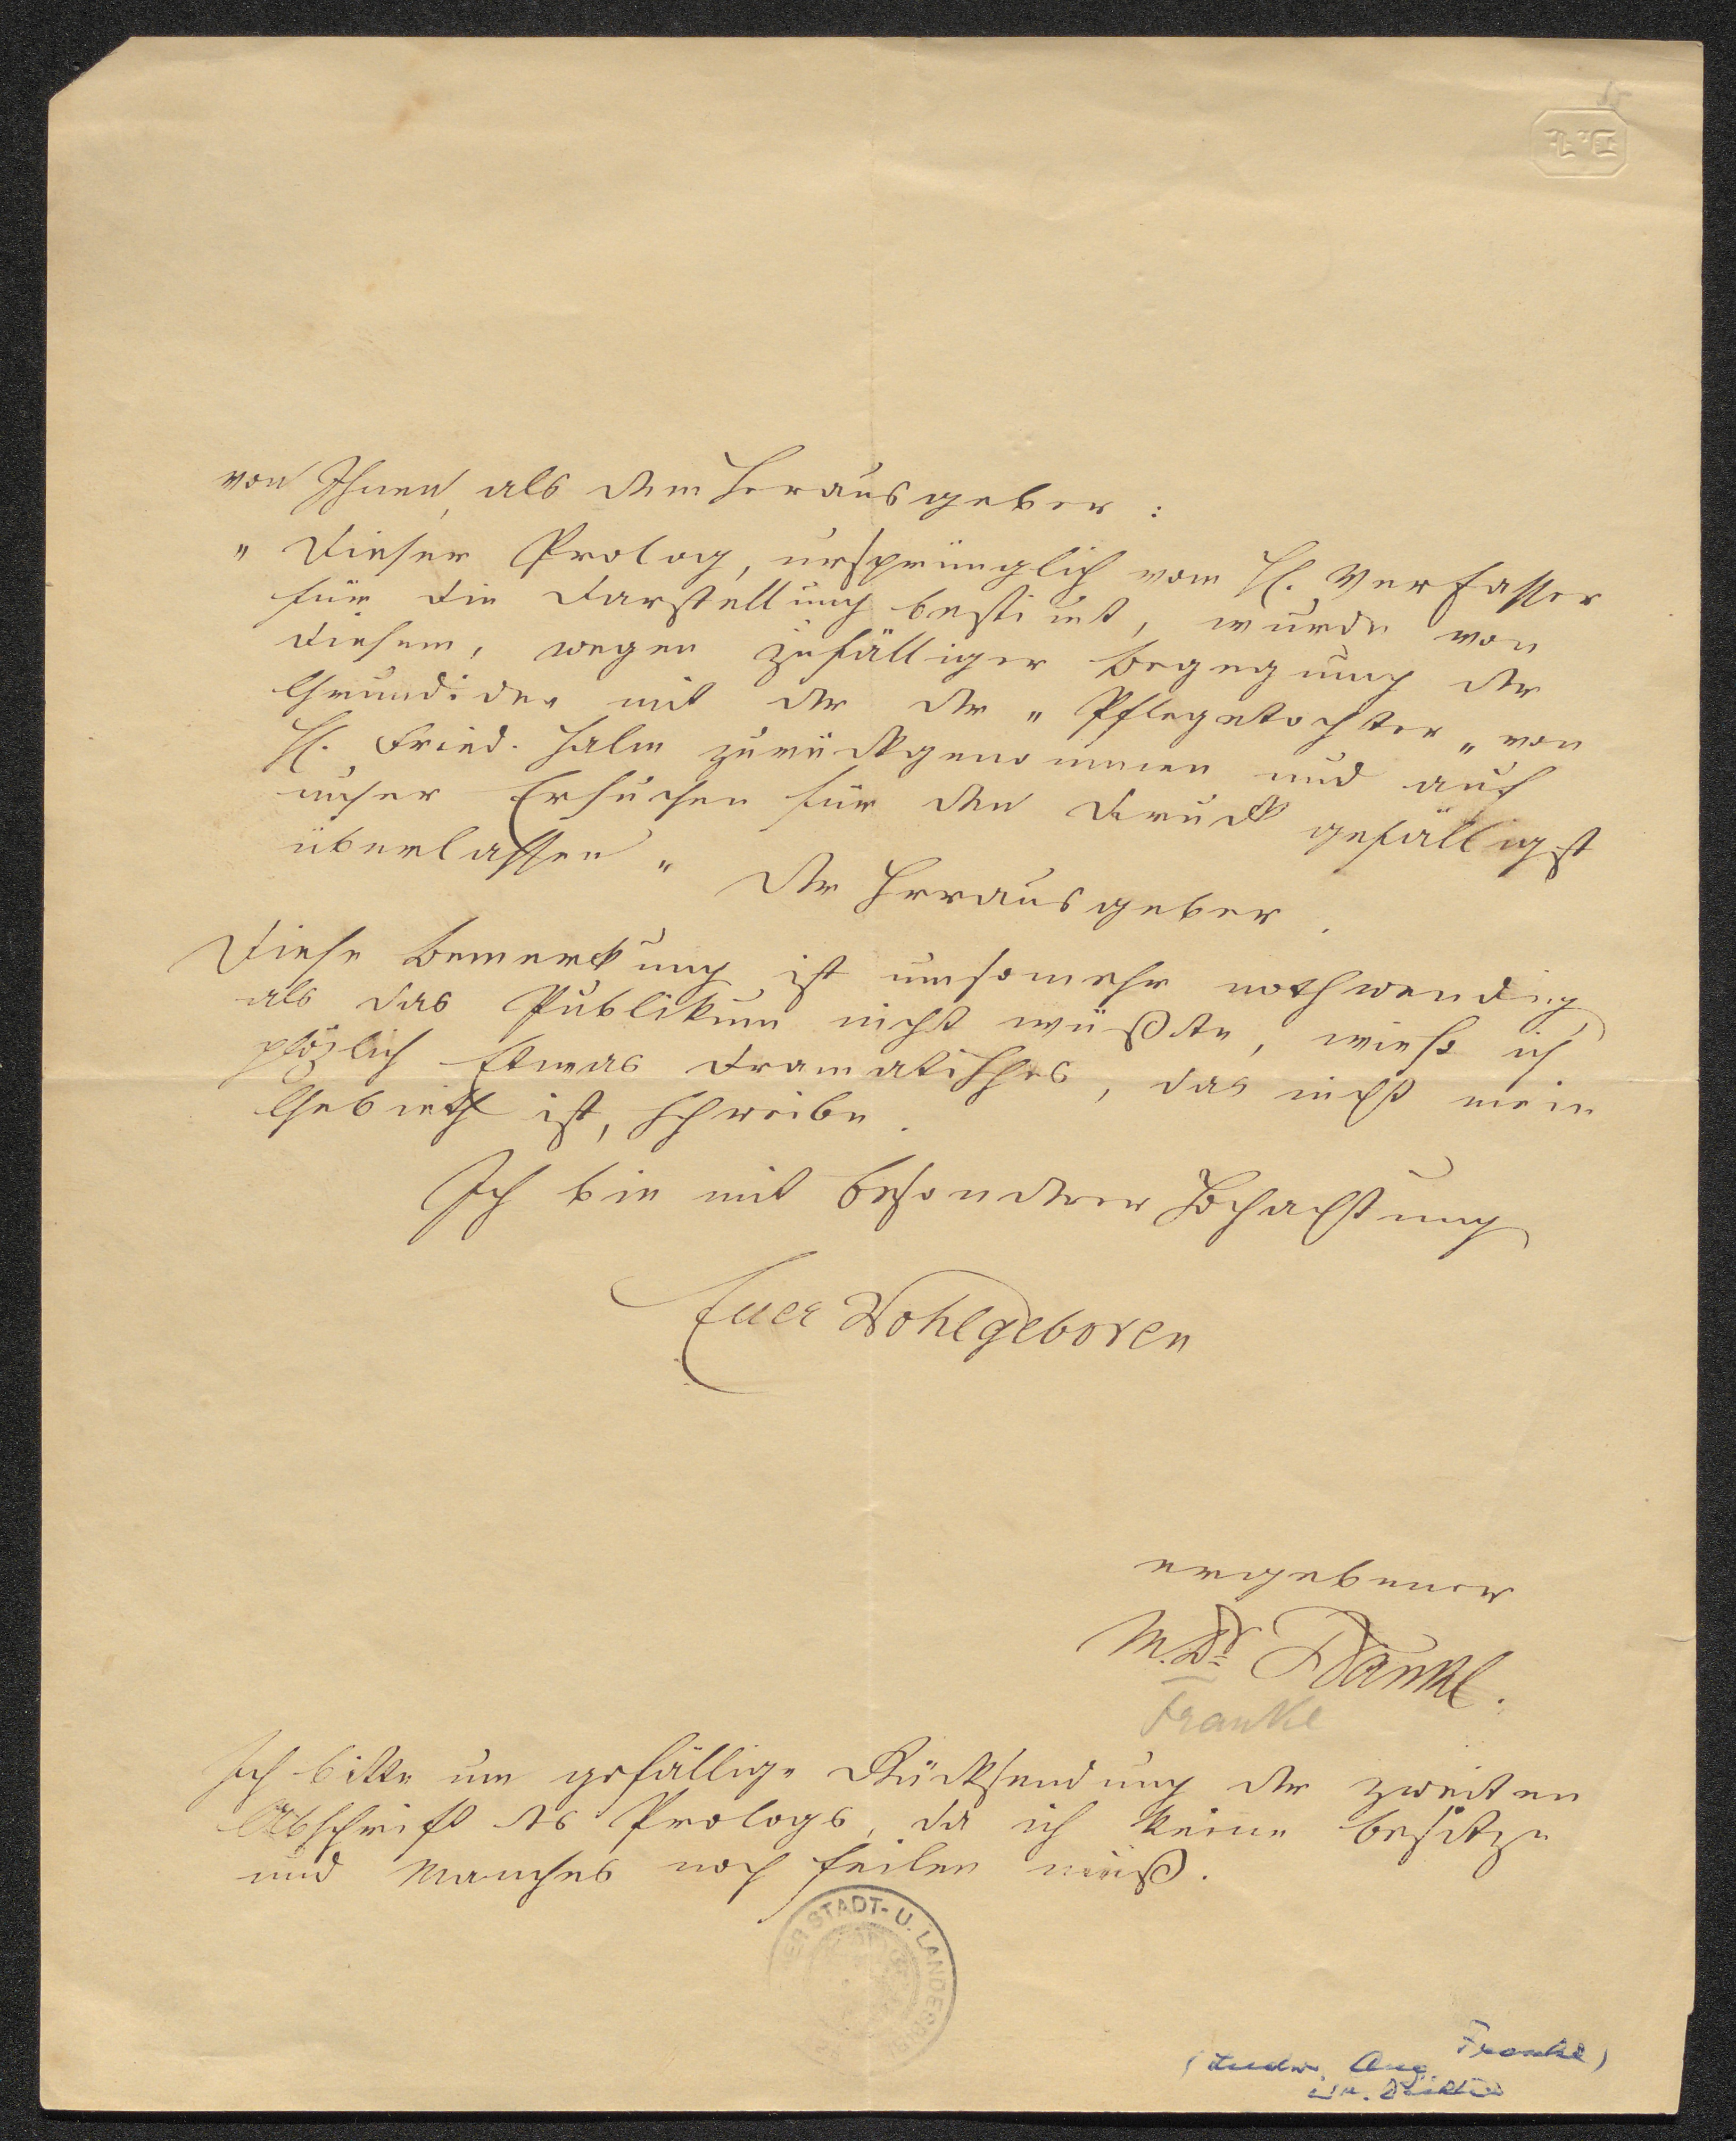 von Ihnen, als dem Herausgeber:
„Dieser Prolog, ursprünglich vom H. Verfasser
für die Darstellung bestimt, wurde von
diesem, wegen zufälliger Begegnung der
Grundidee mit der der „Pflegetochter„ von
H. Fried. Halm zurückgenommen und auf
unser Ersuchen für den Druck gefälligst
überlassen„ Der Herausgeber.
Diese Bemerkung ist umsomehr nothwendig
als das Publikum nicht wüßte, wieso ich
plözlich Etwas Dramatisches, das nicht mein
Gebieth ist, schreibe.
Ich bin mit besonderer Hochachtung
Euer Wohlgeboren
ergebener
M. Dr Frankl.
Frankl
Ich bitte um gefällige Rücksendung der zweiten
Abschrift des Prologs, da ich keine besitze
und Manches noch feilen muß.
STADT- U. LANDESBI
(Ludw. Aug Frankl)